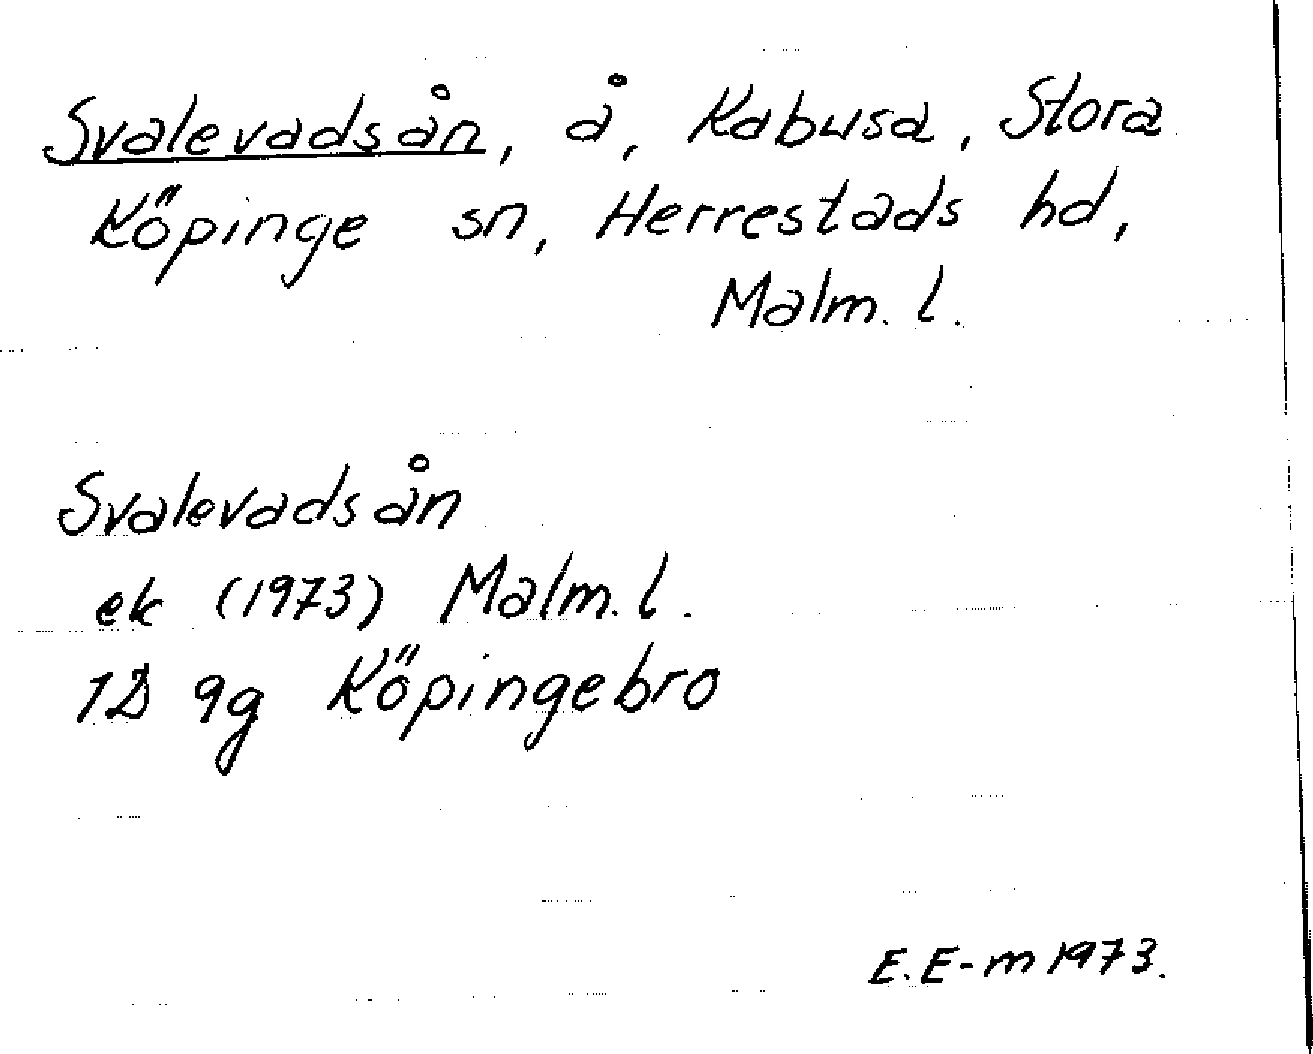 Svalevadsån, å, Kabusa, Stora
Köpinge sn, Herrestads hd,
Malm. l.
Svalevadsån
ek (1973) Malm. l.
1D 9g Köpingebro
E. E-m 1973.